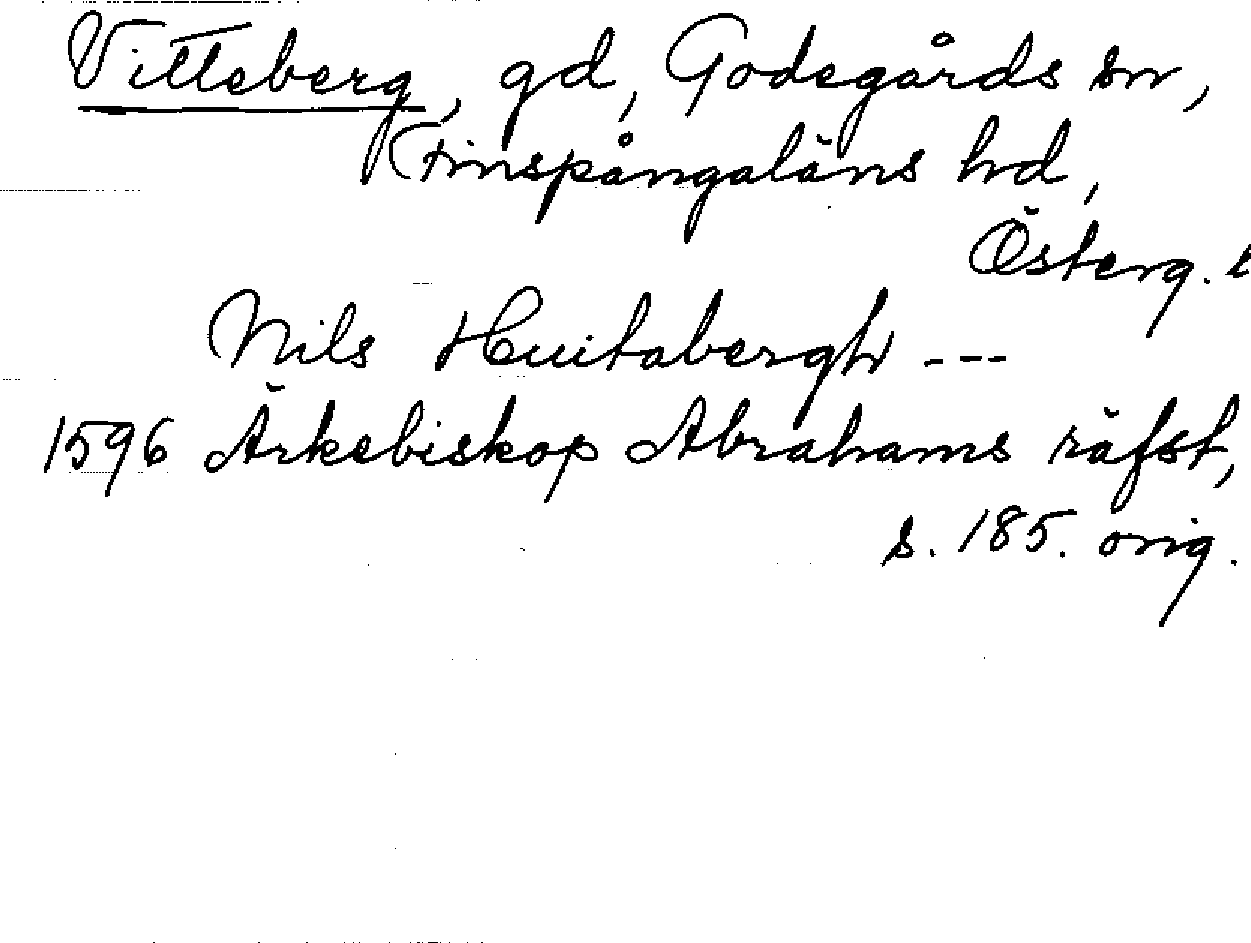 Vitteberg, gd, Godegårds sn,
Finspångaläns hd,
Österg. l
Nils Huitabergh ---
1596 Ärkebiskop Abrahams räfst,
s. 185. orig.